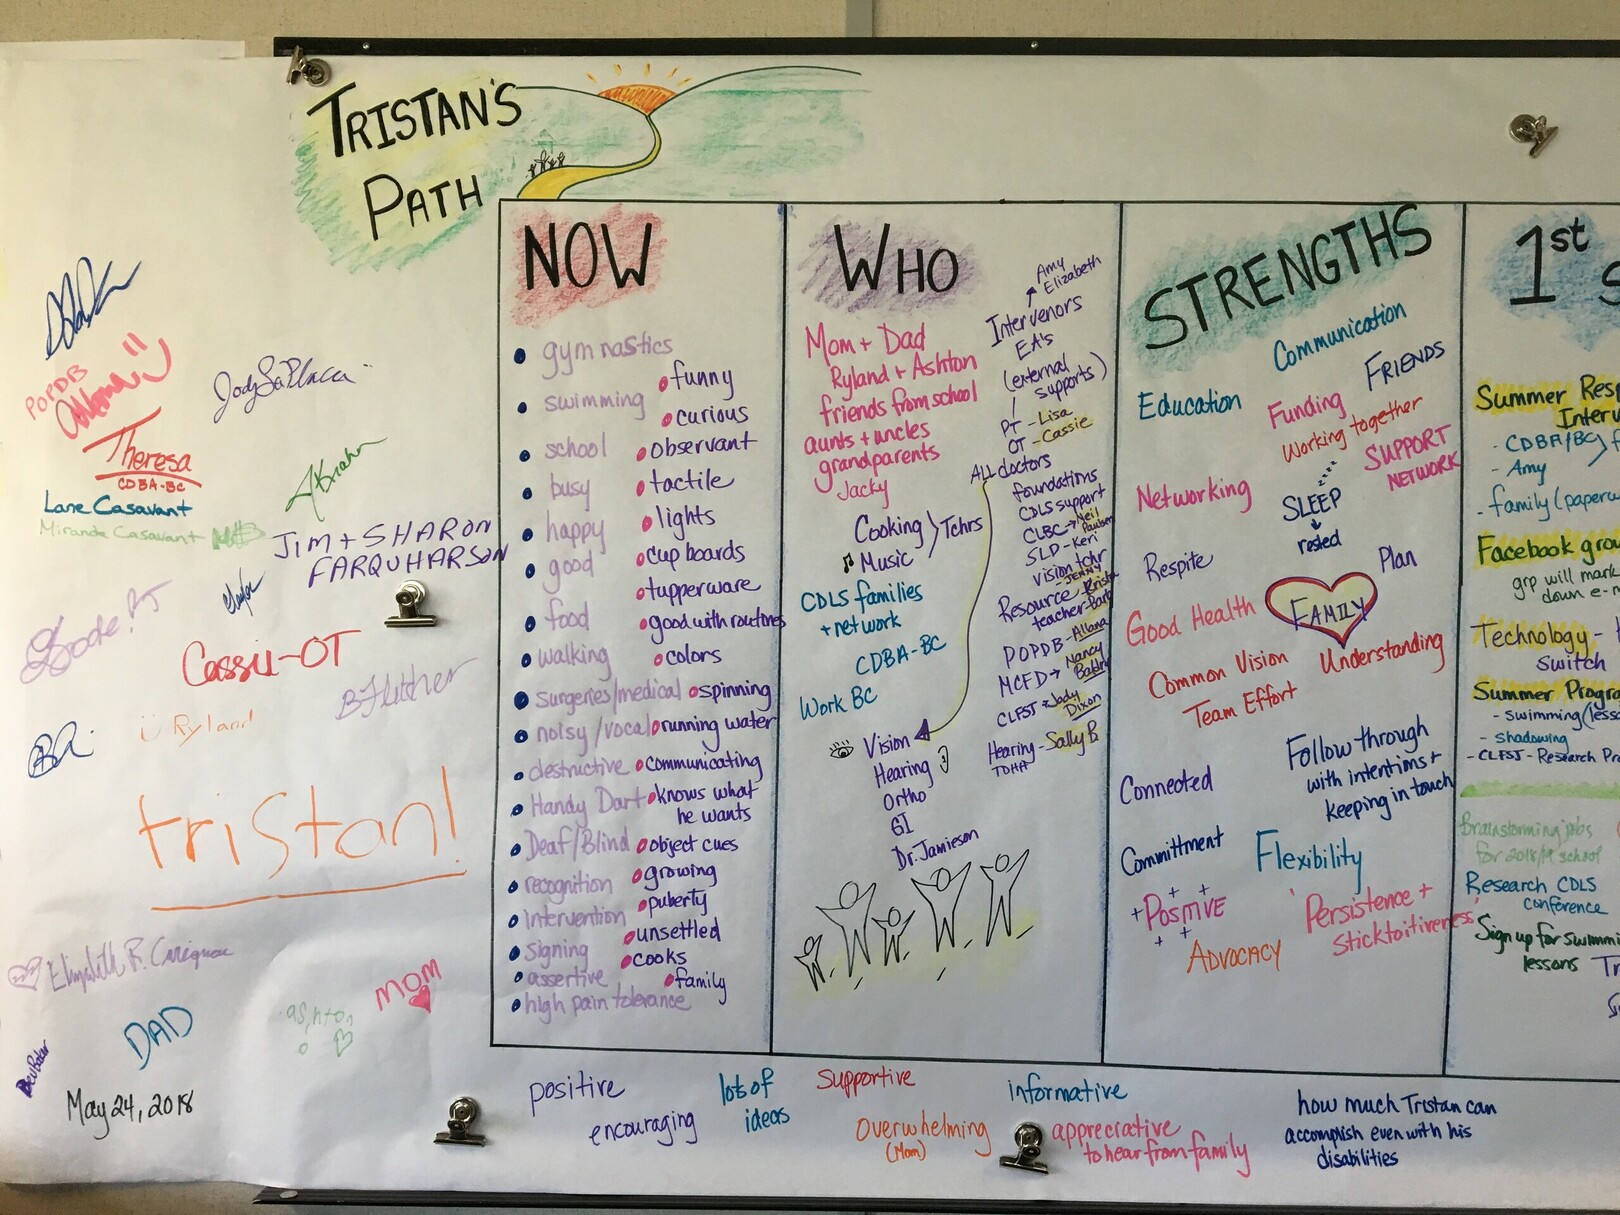 TRISTAN'S
PATH
POPDB
Theresa
CDBA-BC
Lane Casavant
Miranda Casavant
JIM + SHARON
FARQUHARSON
Cassie-OT
Ryland
B Fletcher
tristan!
MOM
DAD
ashton
May 24, 2018
NOW
gymnastics
swimming
school
busy
happy
good
food
walking
surgeries/medical
noisy/vocal
destructive
Handy Dart
Deaf/Blind
recognition
intervention
signing
assertive
high pain tolerance
funny
curious
observant
tactile
lights
cupboards
tupperware
good with routines
colors
spinning
running water
communicating
knows what
he wants
object cues
growing
puberty
unsettled
cooks
family
WHO
Mom + Dad
Ryland + Ashton
friends from school
aunts + uncles
grandparents
Jacky
Cooking
Music
Tchrs
CDLS families
+ network
CDBA-BC
Work BC
Vision
Hearing
Ortho
GI
Dr. Jamieson
Amy
Elizabeth
Intervenors
EA's
(external
supports)
PT - Lisa
OT - Cassie
ALL doctors
foundations
CDLS support
CLBC → Neil
SLP - Keri
vision tchr
- JENNY
Resource
teacher - Barb
POPDB - Allana
MCFD → Nancy
CLFST → Jody
Dixon
Hearing - Sally B
STRENGTHS
Communication
FRIENDS
Education
Funding
Working together
SUPPORT
NETWORK
Networking
SLEEP
rested
Respite
Plan
Good Health
FAMILY
Common Vision
Understanding
Team Effort
Follow through
with intentions +
keeping in touch
Connected
Committment
Flexibility
+ POSITIVE
Persistence +
sticktoitiveness
ADVOCACY
1st S
Summer Resp
Interv
- CDBA/BC
- Amy
- family (paperw
Facebook grou
grp will mark
down e-m
Technology -
Switch
Summer Progra
- swimming (less
- shadowing
- CLFST - Research Pr
Brainstorming jobs
for 2018/19 school
Research CDLS
conference
Sign up for swimmi
lessons
positive
encouraging
lots of
ideas
supportive
overwhelming
(Mom)
informative
appreciative
to hear from family
how much Tristan can
accomplish even with his
disabilities